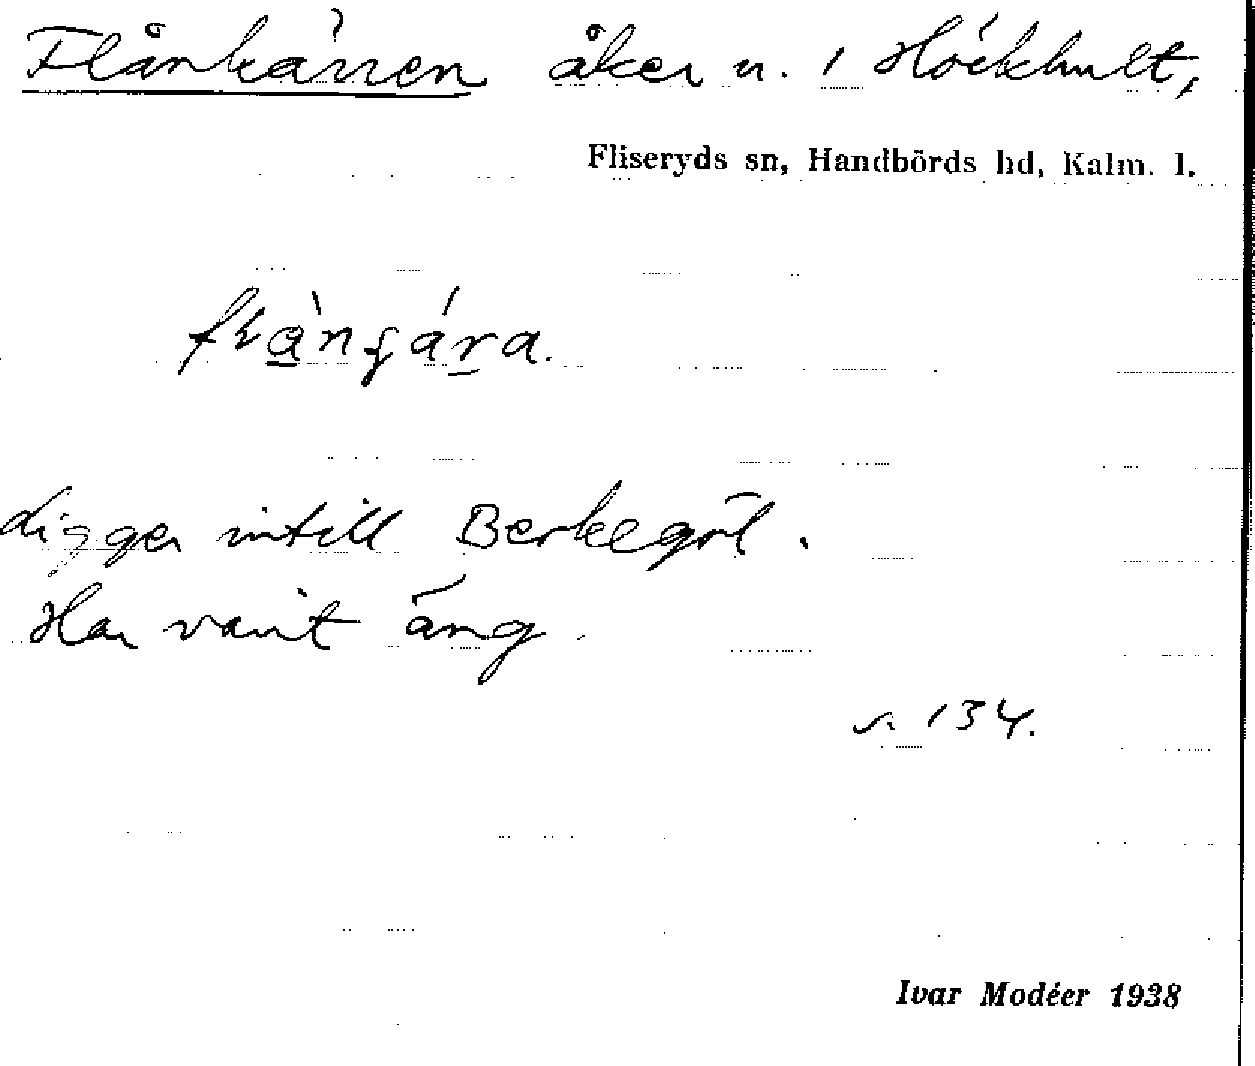 Flånkärren åker n. i Höckhult,
Fliseryds sn, Handbörds hd, Kalm. l.
Ligger intill Berkegöl.
Har varit äng.
s. 134.
Ivar Modéer 1938